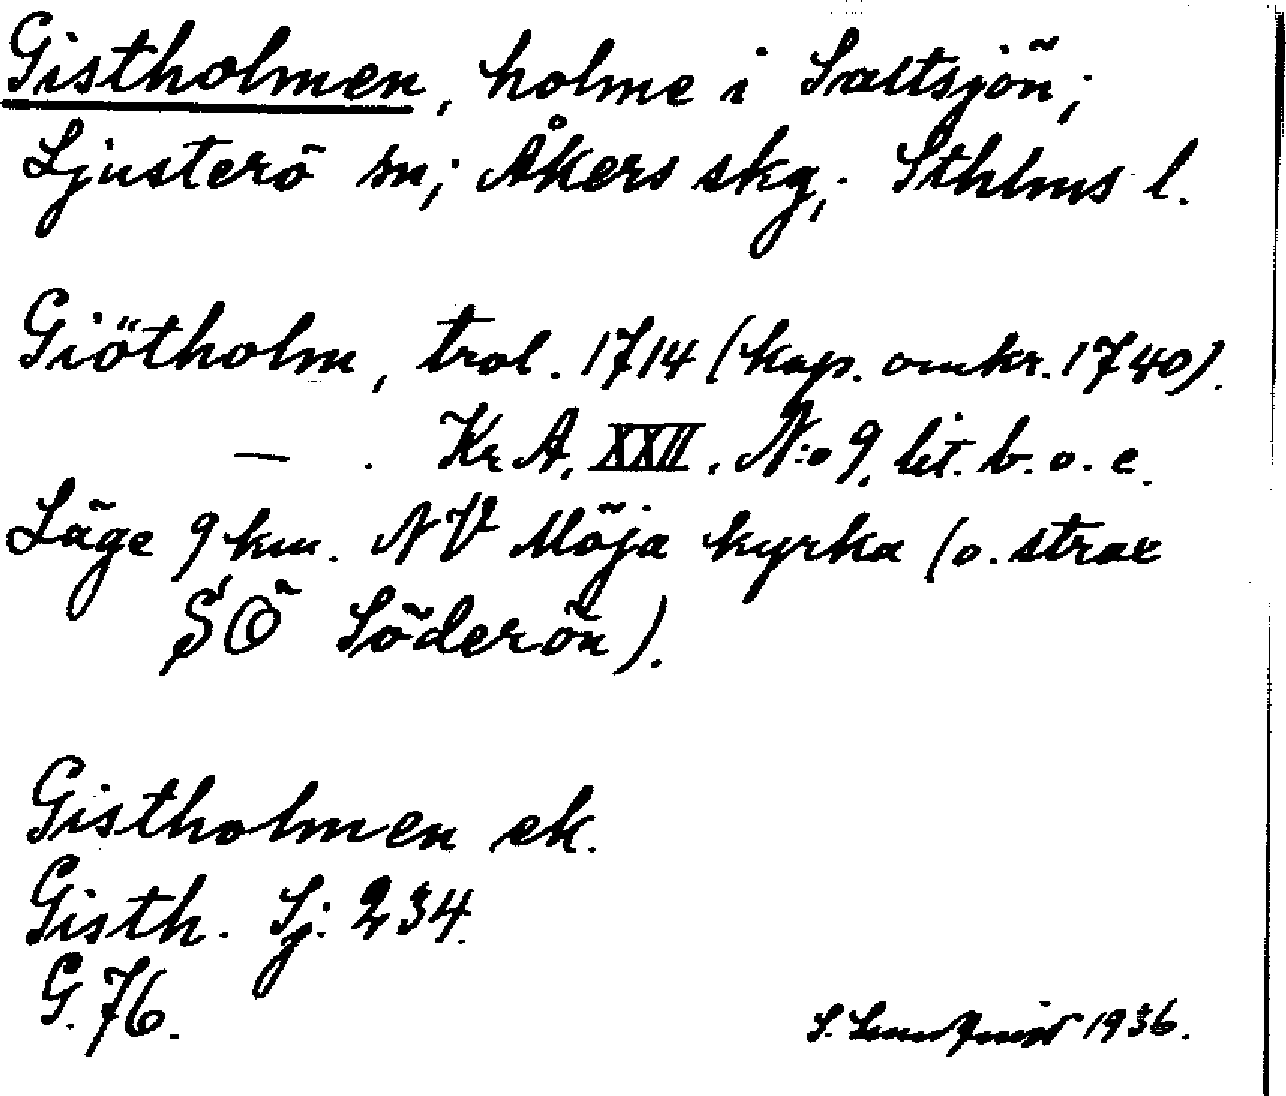 Gistholmen, holme i Saltsjön;
Ljusterö sn; Åkers skg; Sthlms l.
Giötholm, trol. 1714 (kop. omkr. 1740).
— . Kr. A. XXII. N:o 9. lit. b. o. c.
Läge 9 km. NV Möja kyrka (o. strax
SÖ Söderön).
Gistholmen ek.
Gisth. Sj: 234.
G. 76.
S. 1936.